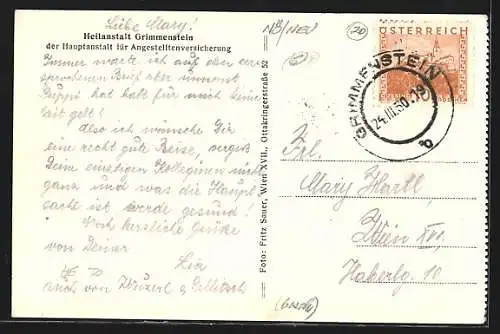 Liebe Mary!
Heilanstalt Grimmenstein
der Hauptanstalt für Angestelltenversicherung
Immer warte ich auf den ver-
sprochenen Brief aber umsonst
hat halt für mich keine
Zeit gell!
Also ich wünsche Dir
eine recht gute Reise, vergeß
Deine einstigen Kolleginen nicht
ganz und was die Haupt-
sache ist werde gesund!
herzliche Grüße
von Deiner
auch von
Foto: Fritz Sauer, Wien XVII., Ottakringerstraße 52
NÖ/NEU
20
ÖSTERREICH
GRIMMENSTEIN
24.III.30
b
Frl.
Mary Hartl
Wien XVI.
Haberlg. 10